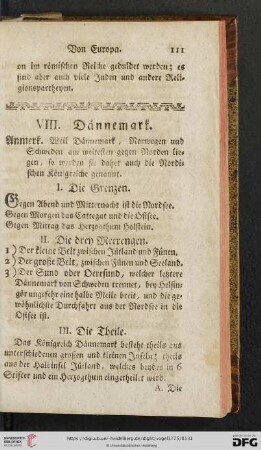 Von Europa. 111
on im römischen Reiche geduldet werden; es
sind aber auch viele Juden und andere Reli-
gionspartheyen.
VIII. Dännemark.
Anmerk. Weil Dännemark, Norwegen und
Schweden am weitesten gegen Norden lie-
gen, so werden sie daher auch die Nordi-
schen Königreiche genannt.
I. Die Grenzen.
Gegen Abend und Mitternacht ist die Nordsee.
Gegen Morgen das Cattegat und die Ostsee.
Gegen Mittag das Herzogthum Holstein.
II. Die drey Meerengen.
1) Der kleine Belt zwischen Jütland und Fünen.
2) Der große Belt, zwischen Fünen und Seeland.
3) Der Sund oder Oeresund, welcher letztere
Dännemark von Schweden trennet, bey Helsin-
gör ungefehr eine halbe Meile breit, und die ge-
wöhnlichste Durchfahrt aus der Nordsee in die
Ostsee ist.
III. Die Theile.
Das Königreich Dännemark besteht theils aus
unterschiedenen grossen und kleinen Inseln; theils
aus der Halbinsel Jütland, welches beydes in 6
Stifter und ein Herzogthum eingetheilet wird.
A. Die
UNIVERSITÄTS-
BIBLIOTHEK
HEIDELBERG
Gefördert durch die
DFG